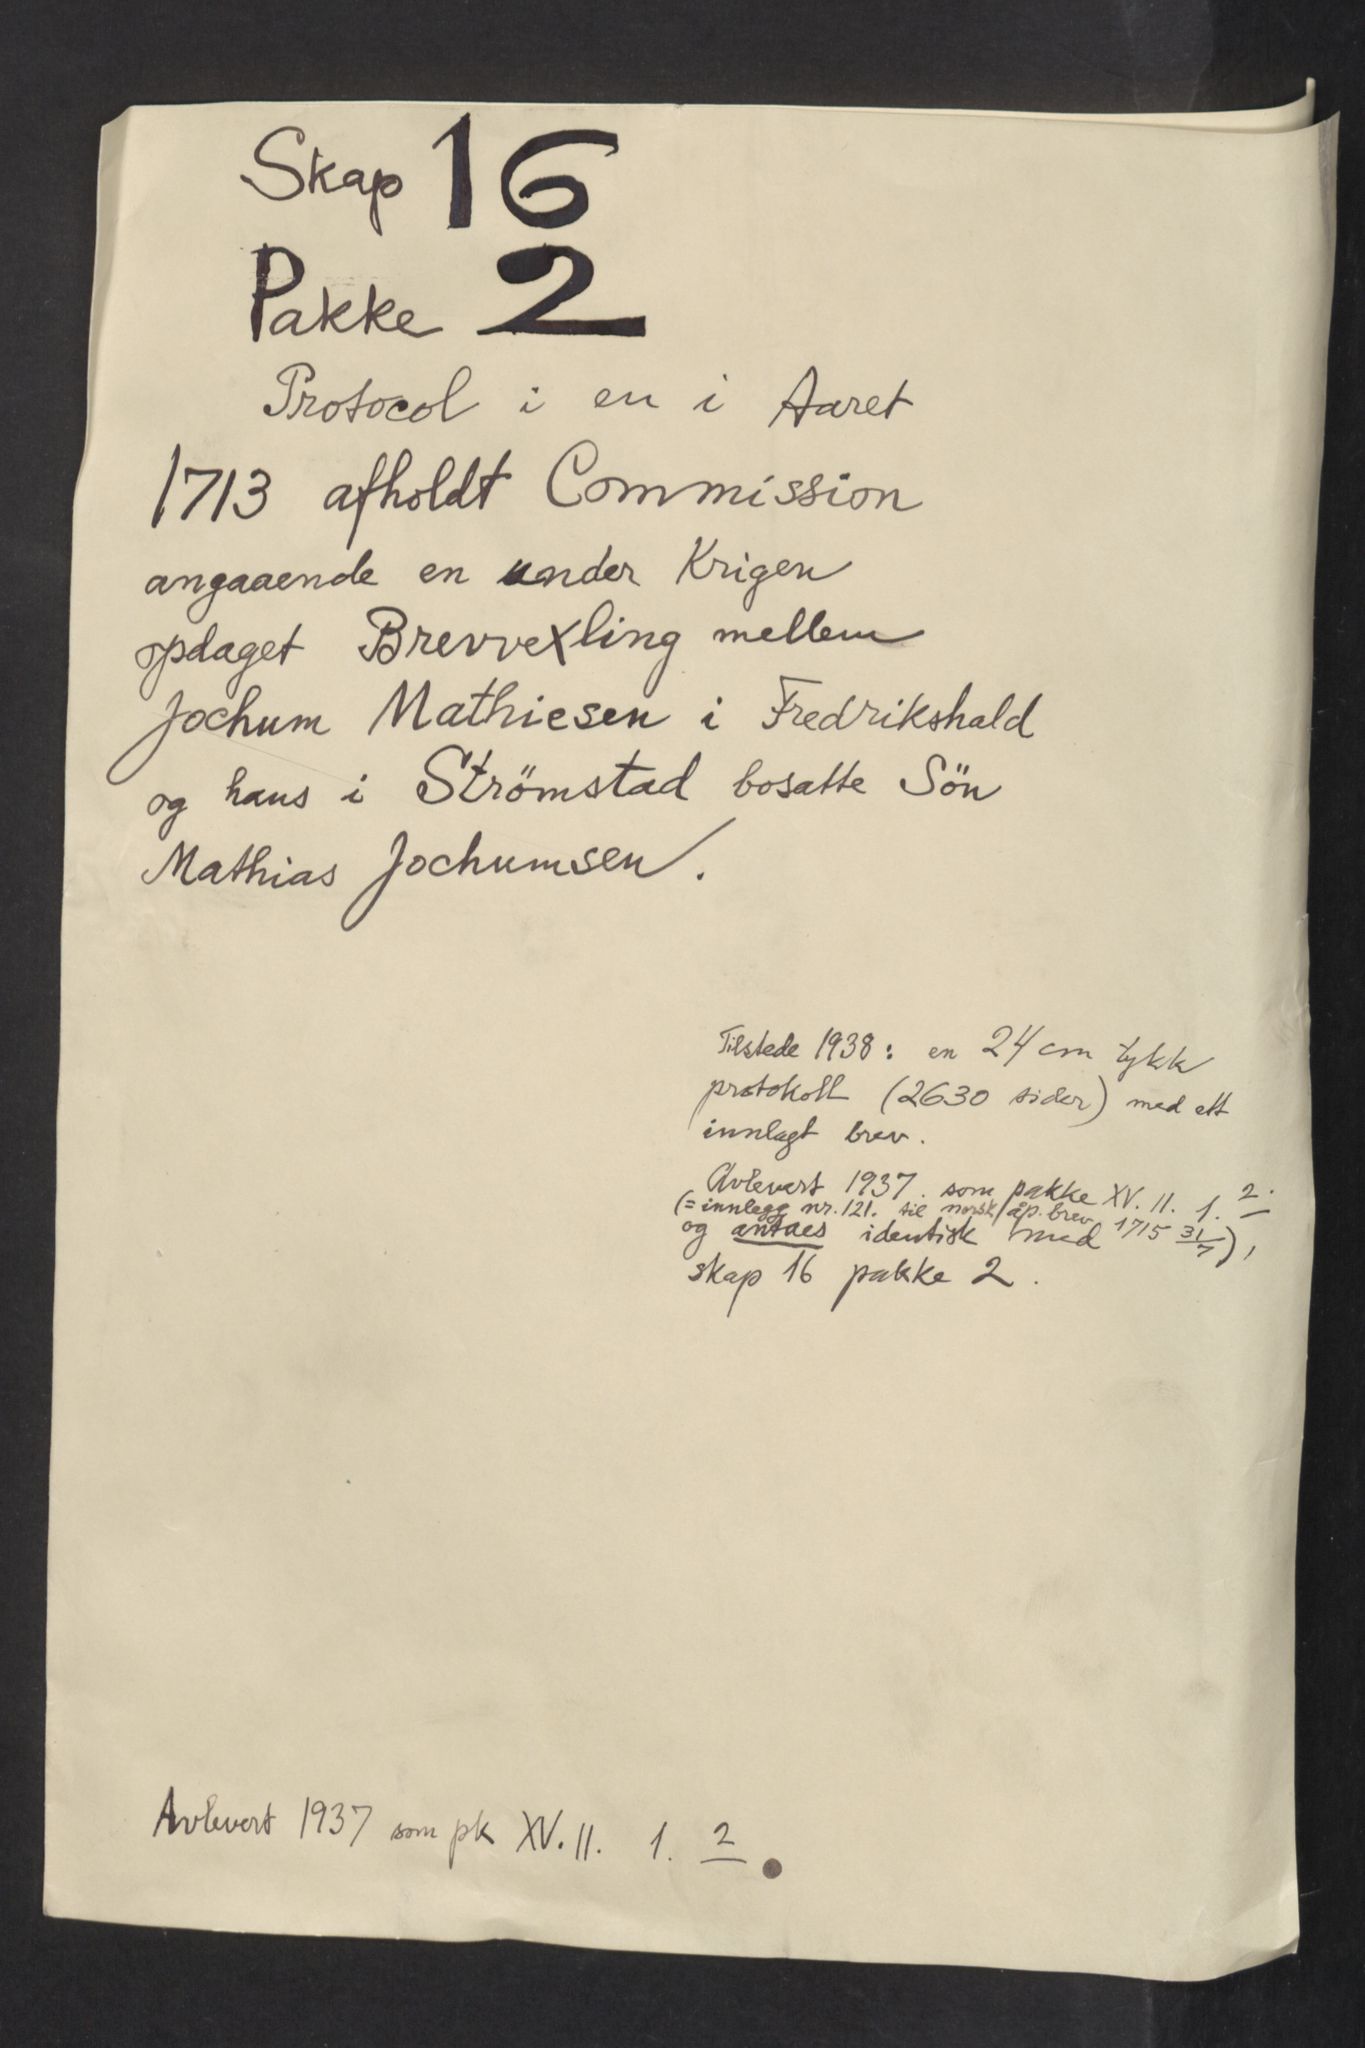 Skap 16
Pakke 2
Protocol i en i Aaret
1713 afholdt Commission
angaaende en under Krigen
opdaget Brevvexling mellem
Jochum Mathiesen i Fredrikshald
og hans i Strömstad bosatte Sön
Mathias Jochumsen.
Tilstede 1938: en 24 cm tykk
protokoll (2630 sider) med ett
innlagt brev.
Avlevert 1937 som pakke XV. II. 1. 2.
(= innlegg nr. 121. til norsk åp. brev 1715 31/7),
og antaes identisk med
skap 16 pakke 2.
Avlevert 1937 som pk XV. II. 1. 2